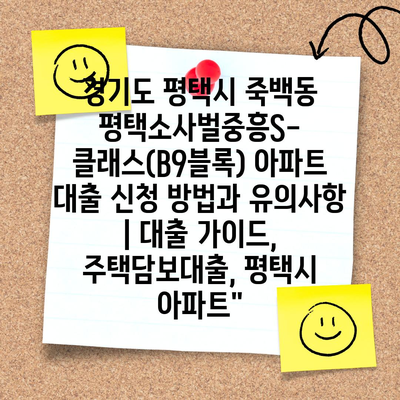 경기도 평택시 죽백동
평택소사벌중흥S-
클래스(B9블록) 아파트
대출 신청 방법과 유의사항
| 대출 가이드,
주택담보대출, 평택시
아파트"